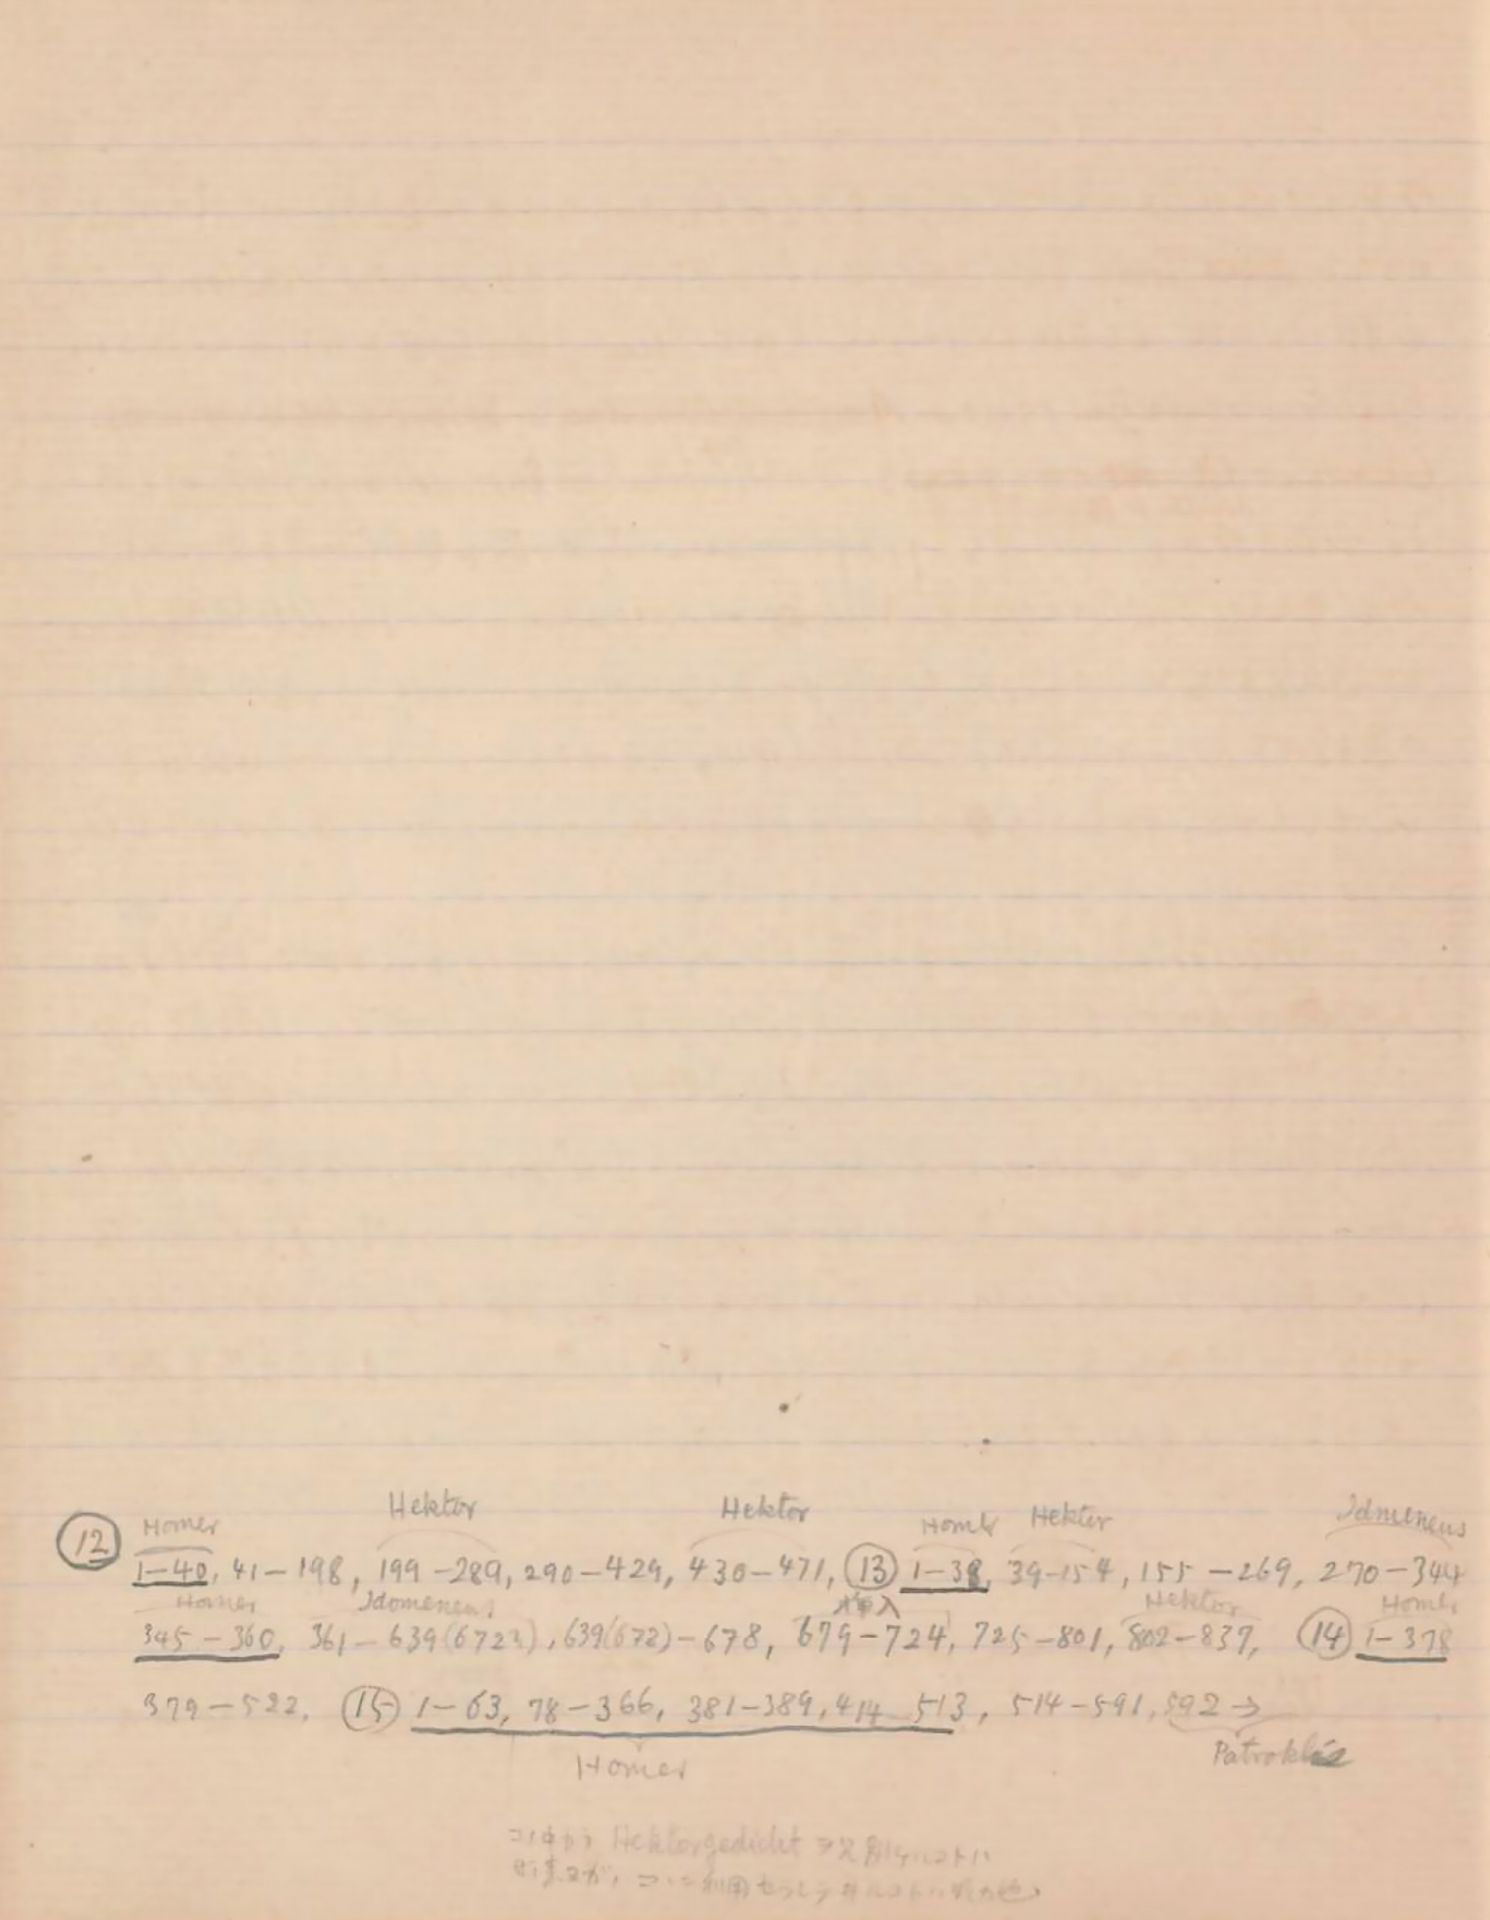 Hektor Hektor Idomeneus
Homer Homer Hektor
⑫ 1-40, 41-198, 199-289, 290-429, 430-471, ⑬ 1-38, 39-154, 155-269, 270-344
Homer Idomeneus 挿入 Hektor Homer
345-360, 361-639(672), 639(672)-678, 679-724, 725-801, 802-837, ⑭ 1-378
379-522, ⑮ 1-63, 78-366, 381-389, 414 513, 514-591, 592→
Homer Patroklos
コノ中カラ Hektorgedicht ヲ
利用セラレテ